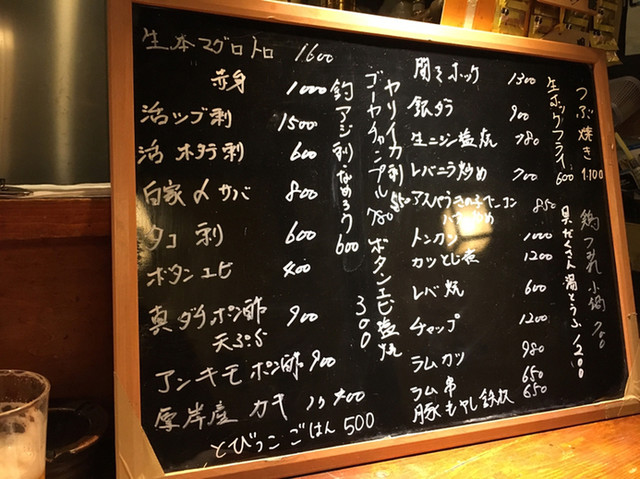 生本マグロトロ 1600
赤身 1000
活ツブ刺 1500
活ホタテ刺 600
自家〆サバ 800
タコ刺 600
ボタンエビ 400
真ダチポン酢 900
天ぷら
アンキモポン酢 900
厚岸産カキ 1ヶ400
とびっこごはん 500
釣アジ刺なめろう 600
ゴーヤチャンプル 780
ヤリイカ刺 550
ボタンエビ塩焼 300
開きホッケ 1300
銀ダラ 900
生ニシン塩焼 780
レバニラ炒め 700
アスパラきの子ベーコン 850
バタ炒め
トンカツ 1000
カツとじ煮 1200
レバ焼 600
チャップ 1200
ラムカツ 980
ラム串 650
豚もやし鉄板 650
生ホッケフライ 600
つぶ焼き 1.100
具だくさん湯どうふ 1200
鶏つみれ小鍋